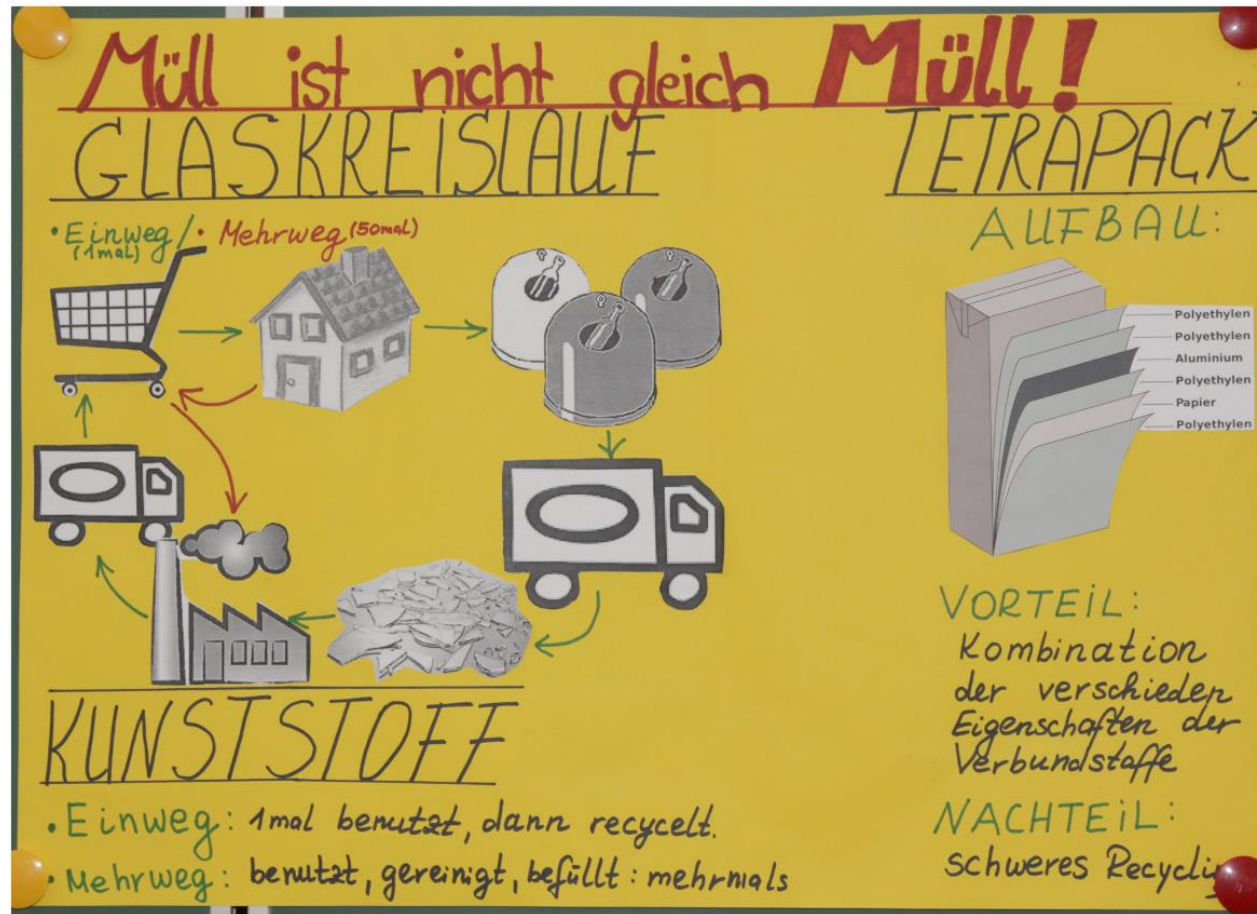 Müll ist nicht gleich Müll!
GLASKREISLAUF
• Einweg / • Mehrweg (50mal)
(1mal)
KUNSTSTOFF
• Einweg: 1mal benutzt, dann recycelt.
• Mehrweg: benutzt, gereinigt, befüllt: mehrmals
TETRAPACK
AUFBAU:
Polyethylen
Polyethylen
Aluminium
Polyethylen
Papier
Polyethylen
VORTEIL:
Kombination
der verschieden
Eigenschaften der
Verbundstoffe
NACHTEIL:
schweres Recycling